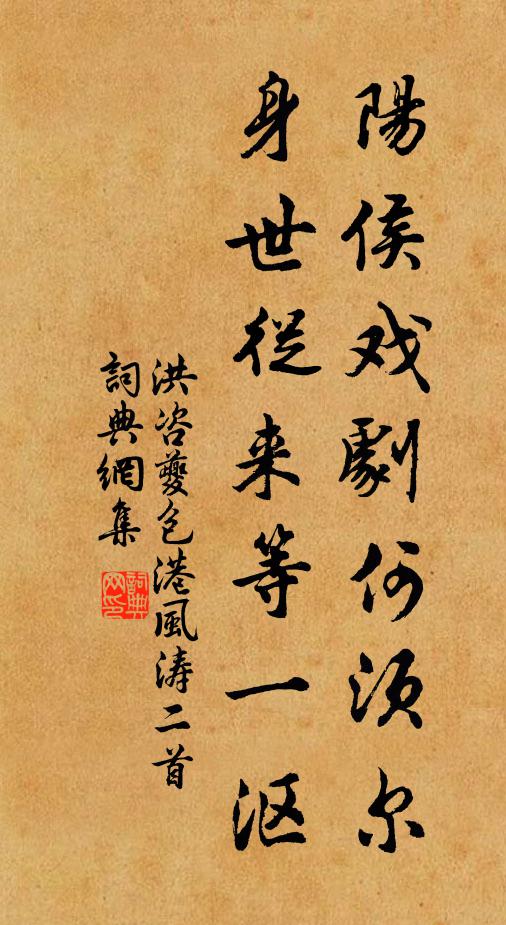 陽侯戏劇何須尔
身世從来等一漚
洪咨夔包港風濤二首
詞典網集
詞典网印